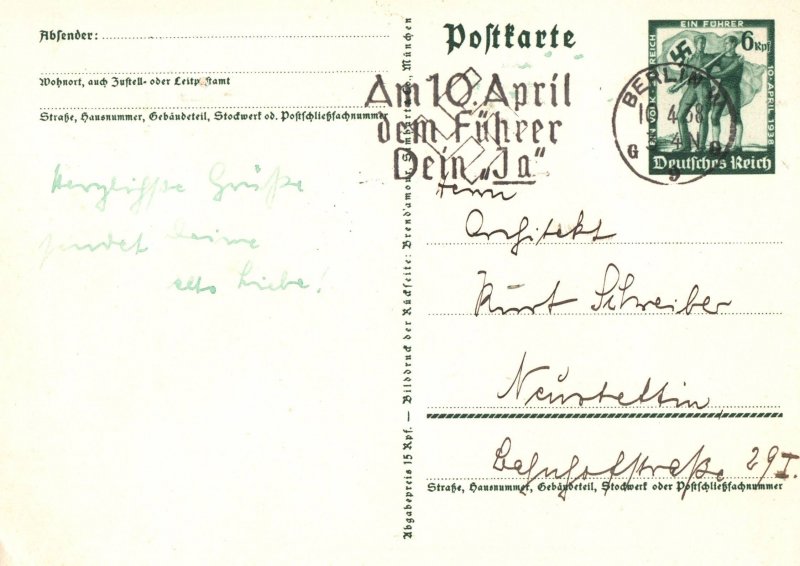 Absender:
Wohnort, auch Zustell- oder Leitpostamt
Straße, Hausnummer, Gebäudeteil, Stockwerk od. Postschließfachnummer
Herzlichste Grüße
sendet Deine
alte Liebe!
Abgabepreis 15 Rpf. — Bilddruck der Rückseite: Brend'amour, Simhart &amp; Co., München
Postkarte
Am 10. April
dem Führer
Dein „Ja"
EIN VOLK EIN REICH
EIN FÜHRER
10. APRIL 1938
6 Rpf
Deutsches Reich
BERLIN
4.38
G
9
Herrn
Architekt
Kurt Schreiber
Neustettin
Bahnhofstraße 29 I.
Straße, Hausnummer, Gebäudeteil, Stockwerk oder Postschließfachnummer